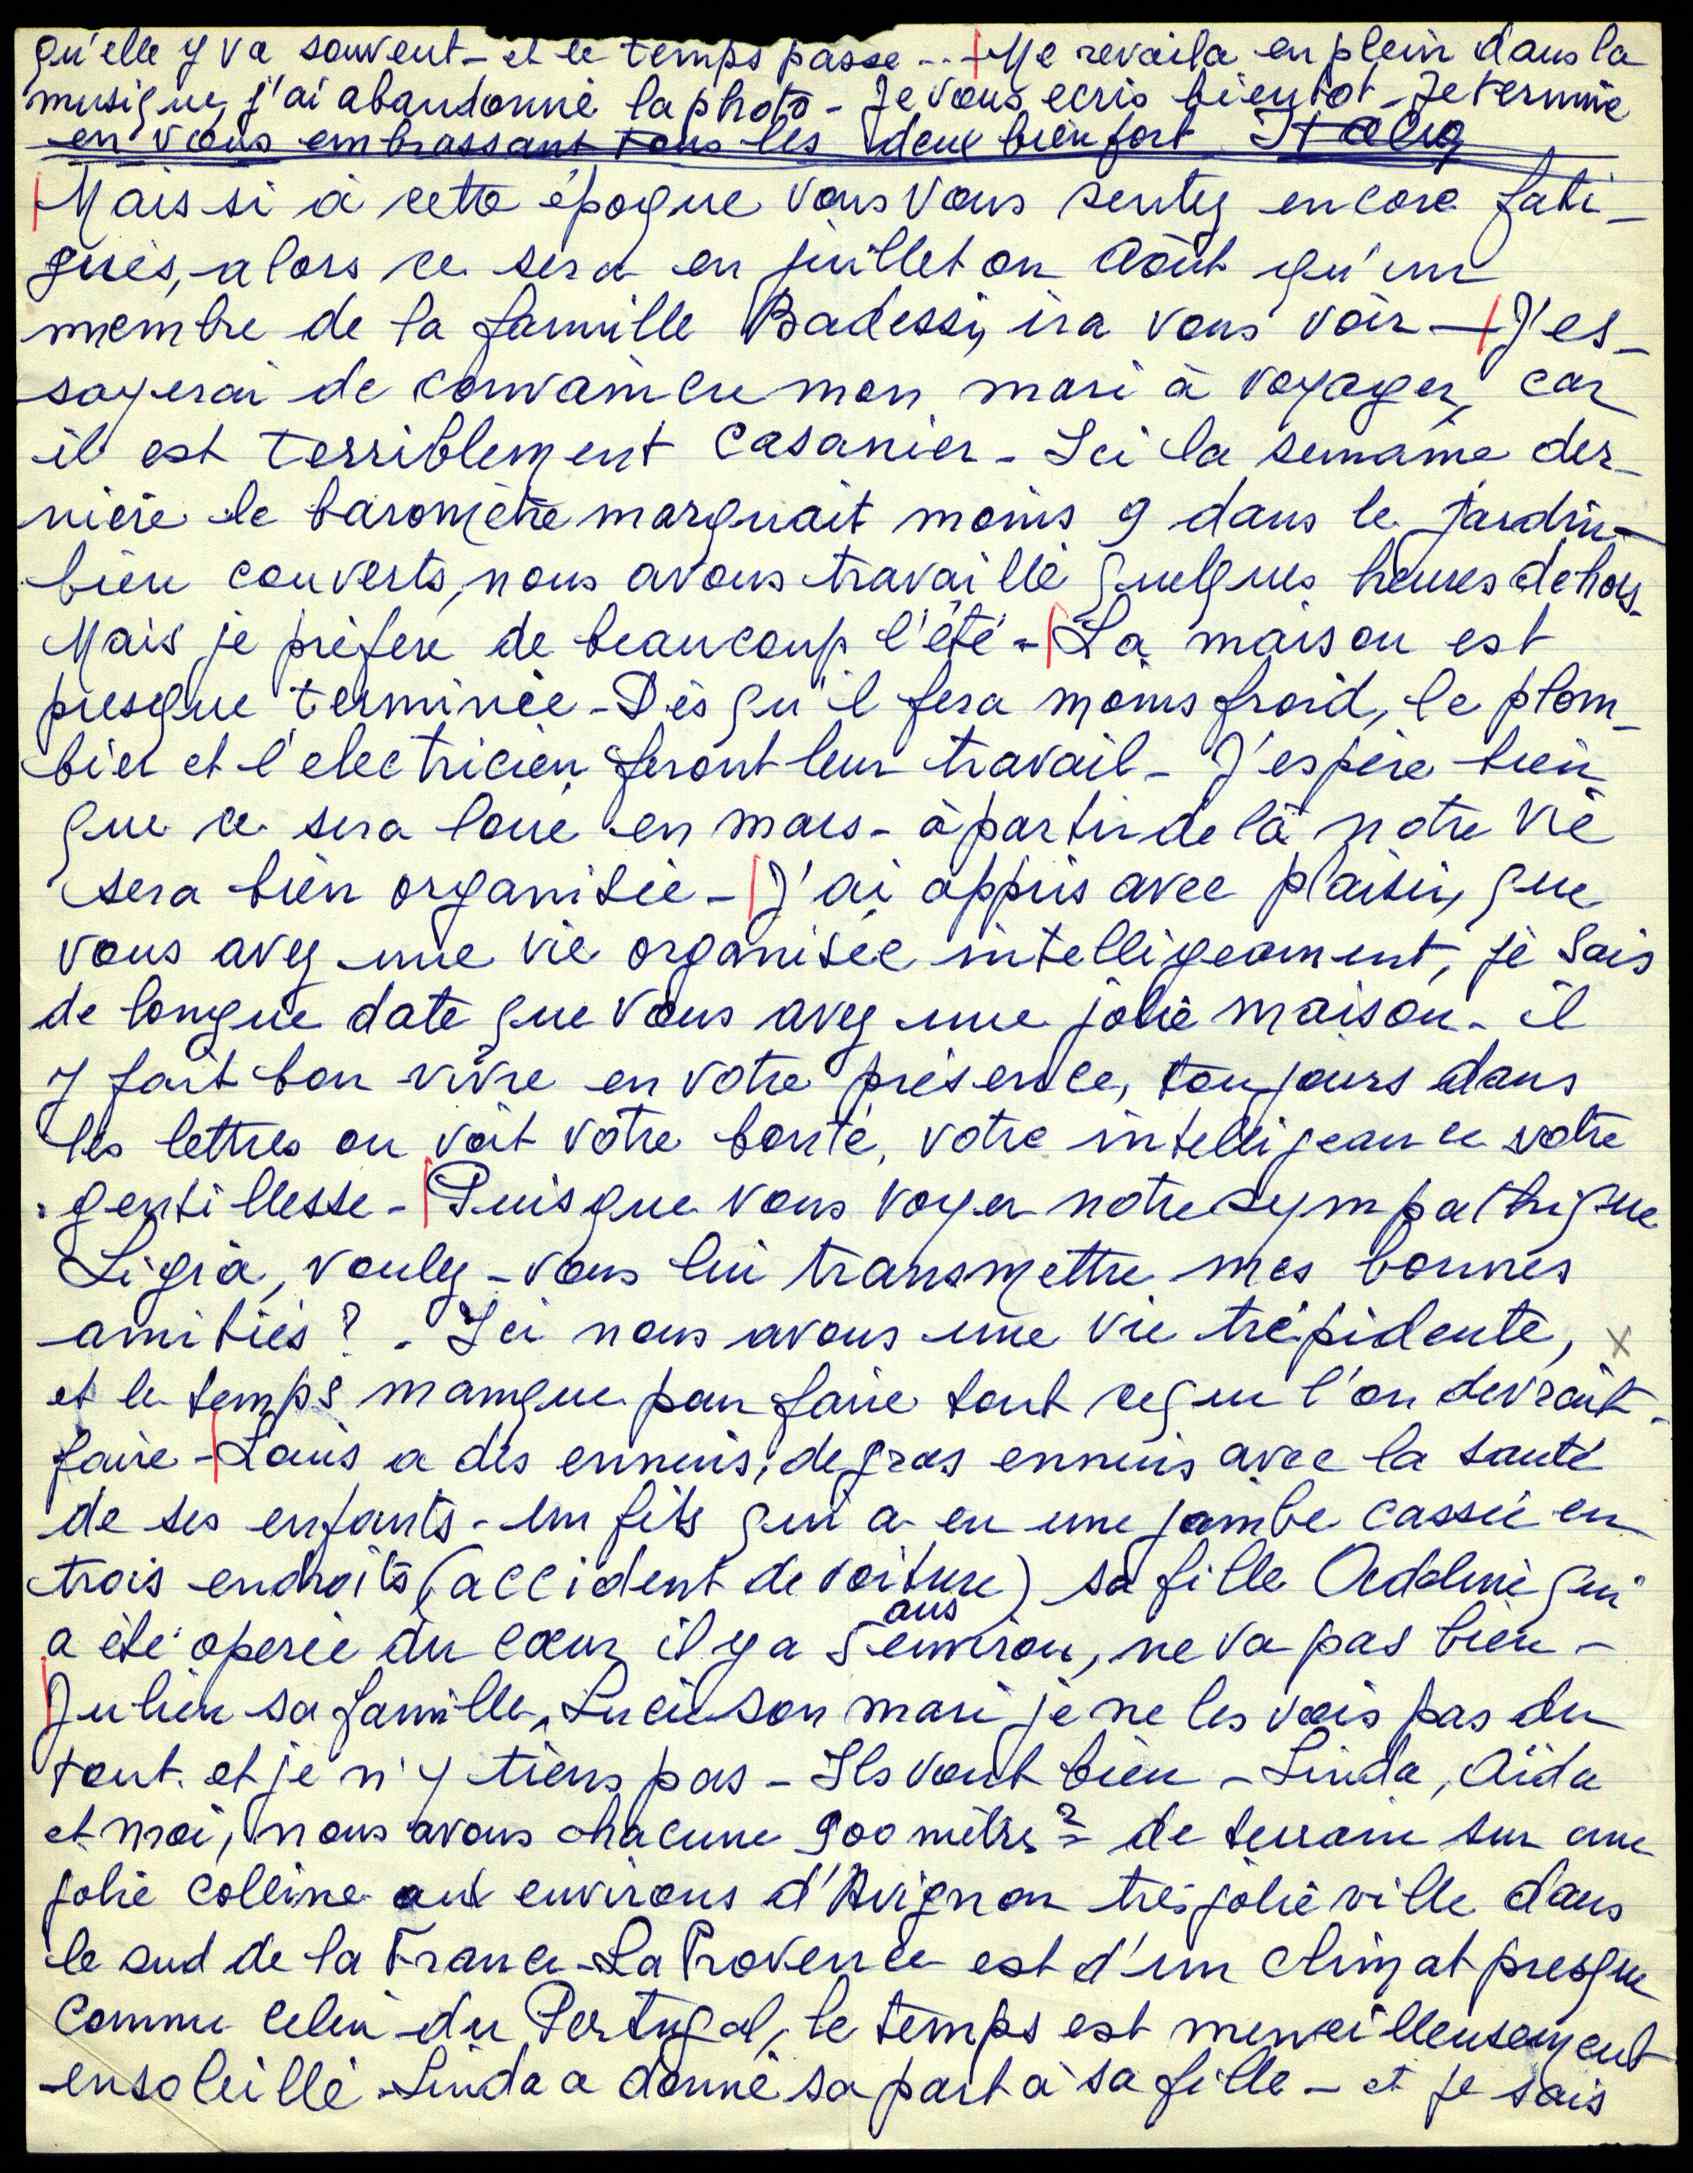 qu'elle y va souvent - et le temps passe ... Me revoila en plein dans la
musique, j'ai abandonné la photo - Je vous ecris bientot - Je termine
en vous embrassant tous les deux bien fort
Mais si à cette époque vous vous sentez encore fati-
gués, alors ce sera en juillet ou Août qu'un
membre de la famille Badessi, ira vous voir - J'es-
sayerai de convaincre mon mari à voyager, car
il est terriblement casanier - Ici la semaine der-
nière le baromètre marquait moins 9 dans le jardin -
bien couverts, nous avons travaillé quelques heures dehors -
Mais je préfère de beaucoup l'été - La maison est
presque terminée - Dès qu'il fera moins froid, le plom-
bier et l'electricien feront leur travail - J'espère bien
que ce sera loué en mars - à partir de là notre vie
sera bien organisée - J'ai appris avec plaisir, que
vous avez une vie organisée intelligeamment, je sais
de longue date que vous avez une jolie maison - il
y fait bon vivre en votre présence, toujours dans
les lettres on voit votre bonté, votre intelligeance votre
gentillesse - Puisque vous voyez notre sympathique
Ligia, voulez-vous lui transmettre mes bonnes
amitiés ? - Ici nous avons une vie trépidente, x
et le temps manque pour faire tout ce que l'on devrait
faire - Louis a des ennuis, de gros ennuis avec la santé
de ses enfants - un fils qui a eu une jambe cassée en
trois endroits (accident de voiture) sa fille qui
a été operée du cœur il y a 5 ans environ, ne va pas bien -
Julien sa famille, Lucie son mari je ne les vois pas du
tout et je n'y tiens pas - Ils vont bien - Linda, Aïda
et moi, nous avons chacune 900 mètres 2 de terrain sur une
jolie colline aux environs d'Avignon très jolie ville dans
le sud de la France - La Provence est d'un climat presque
comme celui du Portugal, le temps est merveilleusement
ensoleillé - Linda a donné sa part à sa fille - et je sais